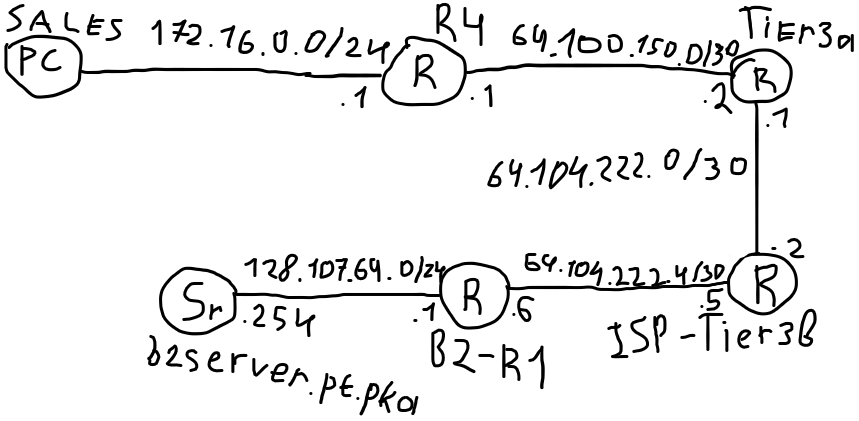 SALES
PC
172.16.0.0/24
.1
R4
R
.1
64.100.150.0/30
Tier3a
R
.2
.1
64.104.222.0/30
.2
R
.5
ISP-Tier3B
64.104.222.4/30
.6
R
B2-R1
.1
128.107.64.0/24
.254
Sr
b2server.pt.pka